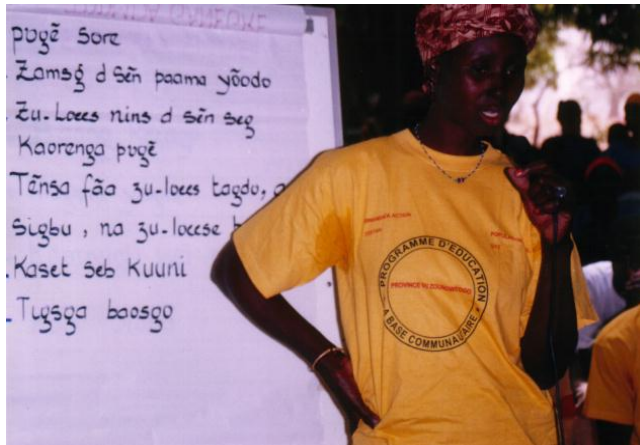 pʋgẽ sore
- Zamsg d sẽn paama yõodo
- Zu-loees nins d sẽn seg
Kaorenga pʋgẽ
Tẽnsa fãa zu-loees tagdo,
sigbu, na zu-loeese
- Kaset seb Kuuni
- Tʋgsga baosgo
PROGRAMME D'EDUCATION
PROVINCE
A BASE COMMUNAUTAIRE